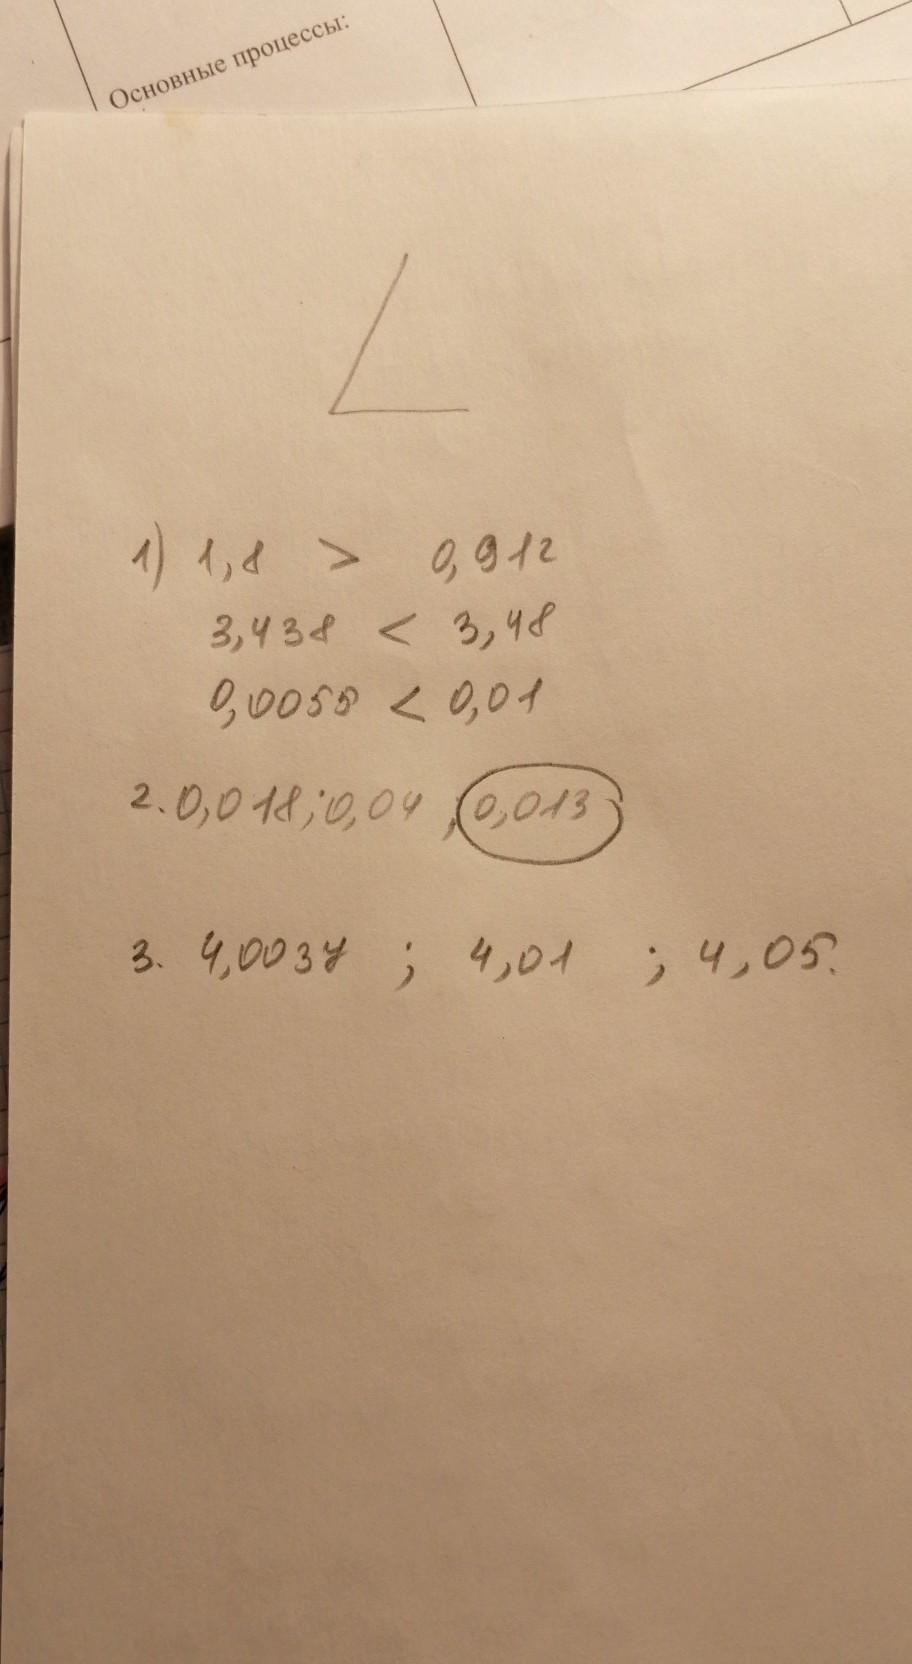 Основные процессы:
1) 1,8 > 0,912
3,438 < 3,48
0,0055 < 0,01
2. 0,018; 0,04; 0,013
3. 4,0037 ; 4,01 ; 4,05.